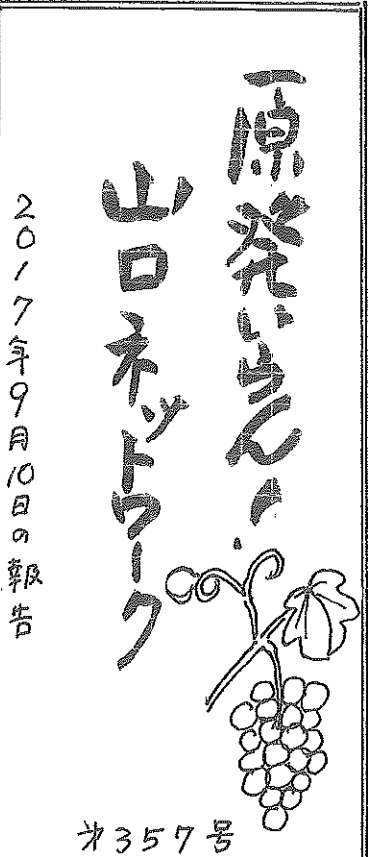 原発いらん!
山口ネットワーク
2017年9月10日の報告
㐧357号